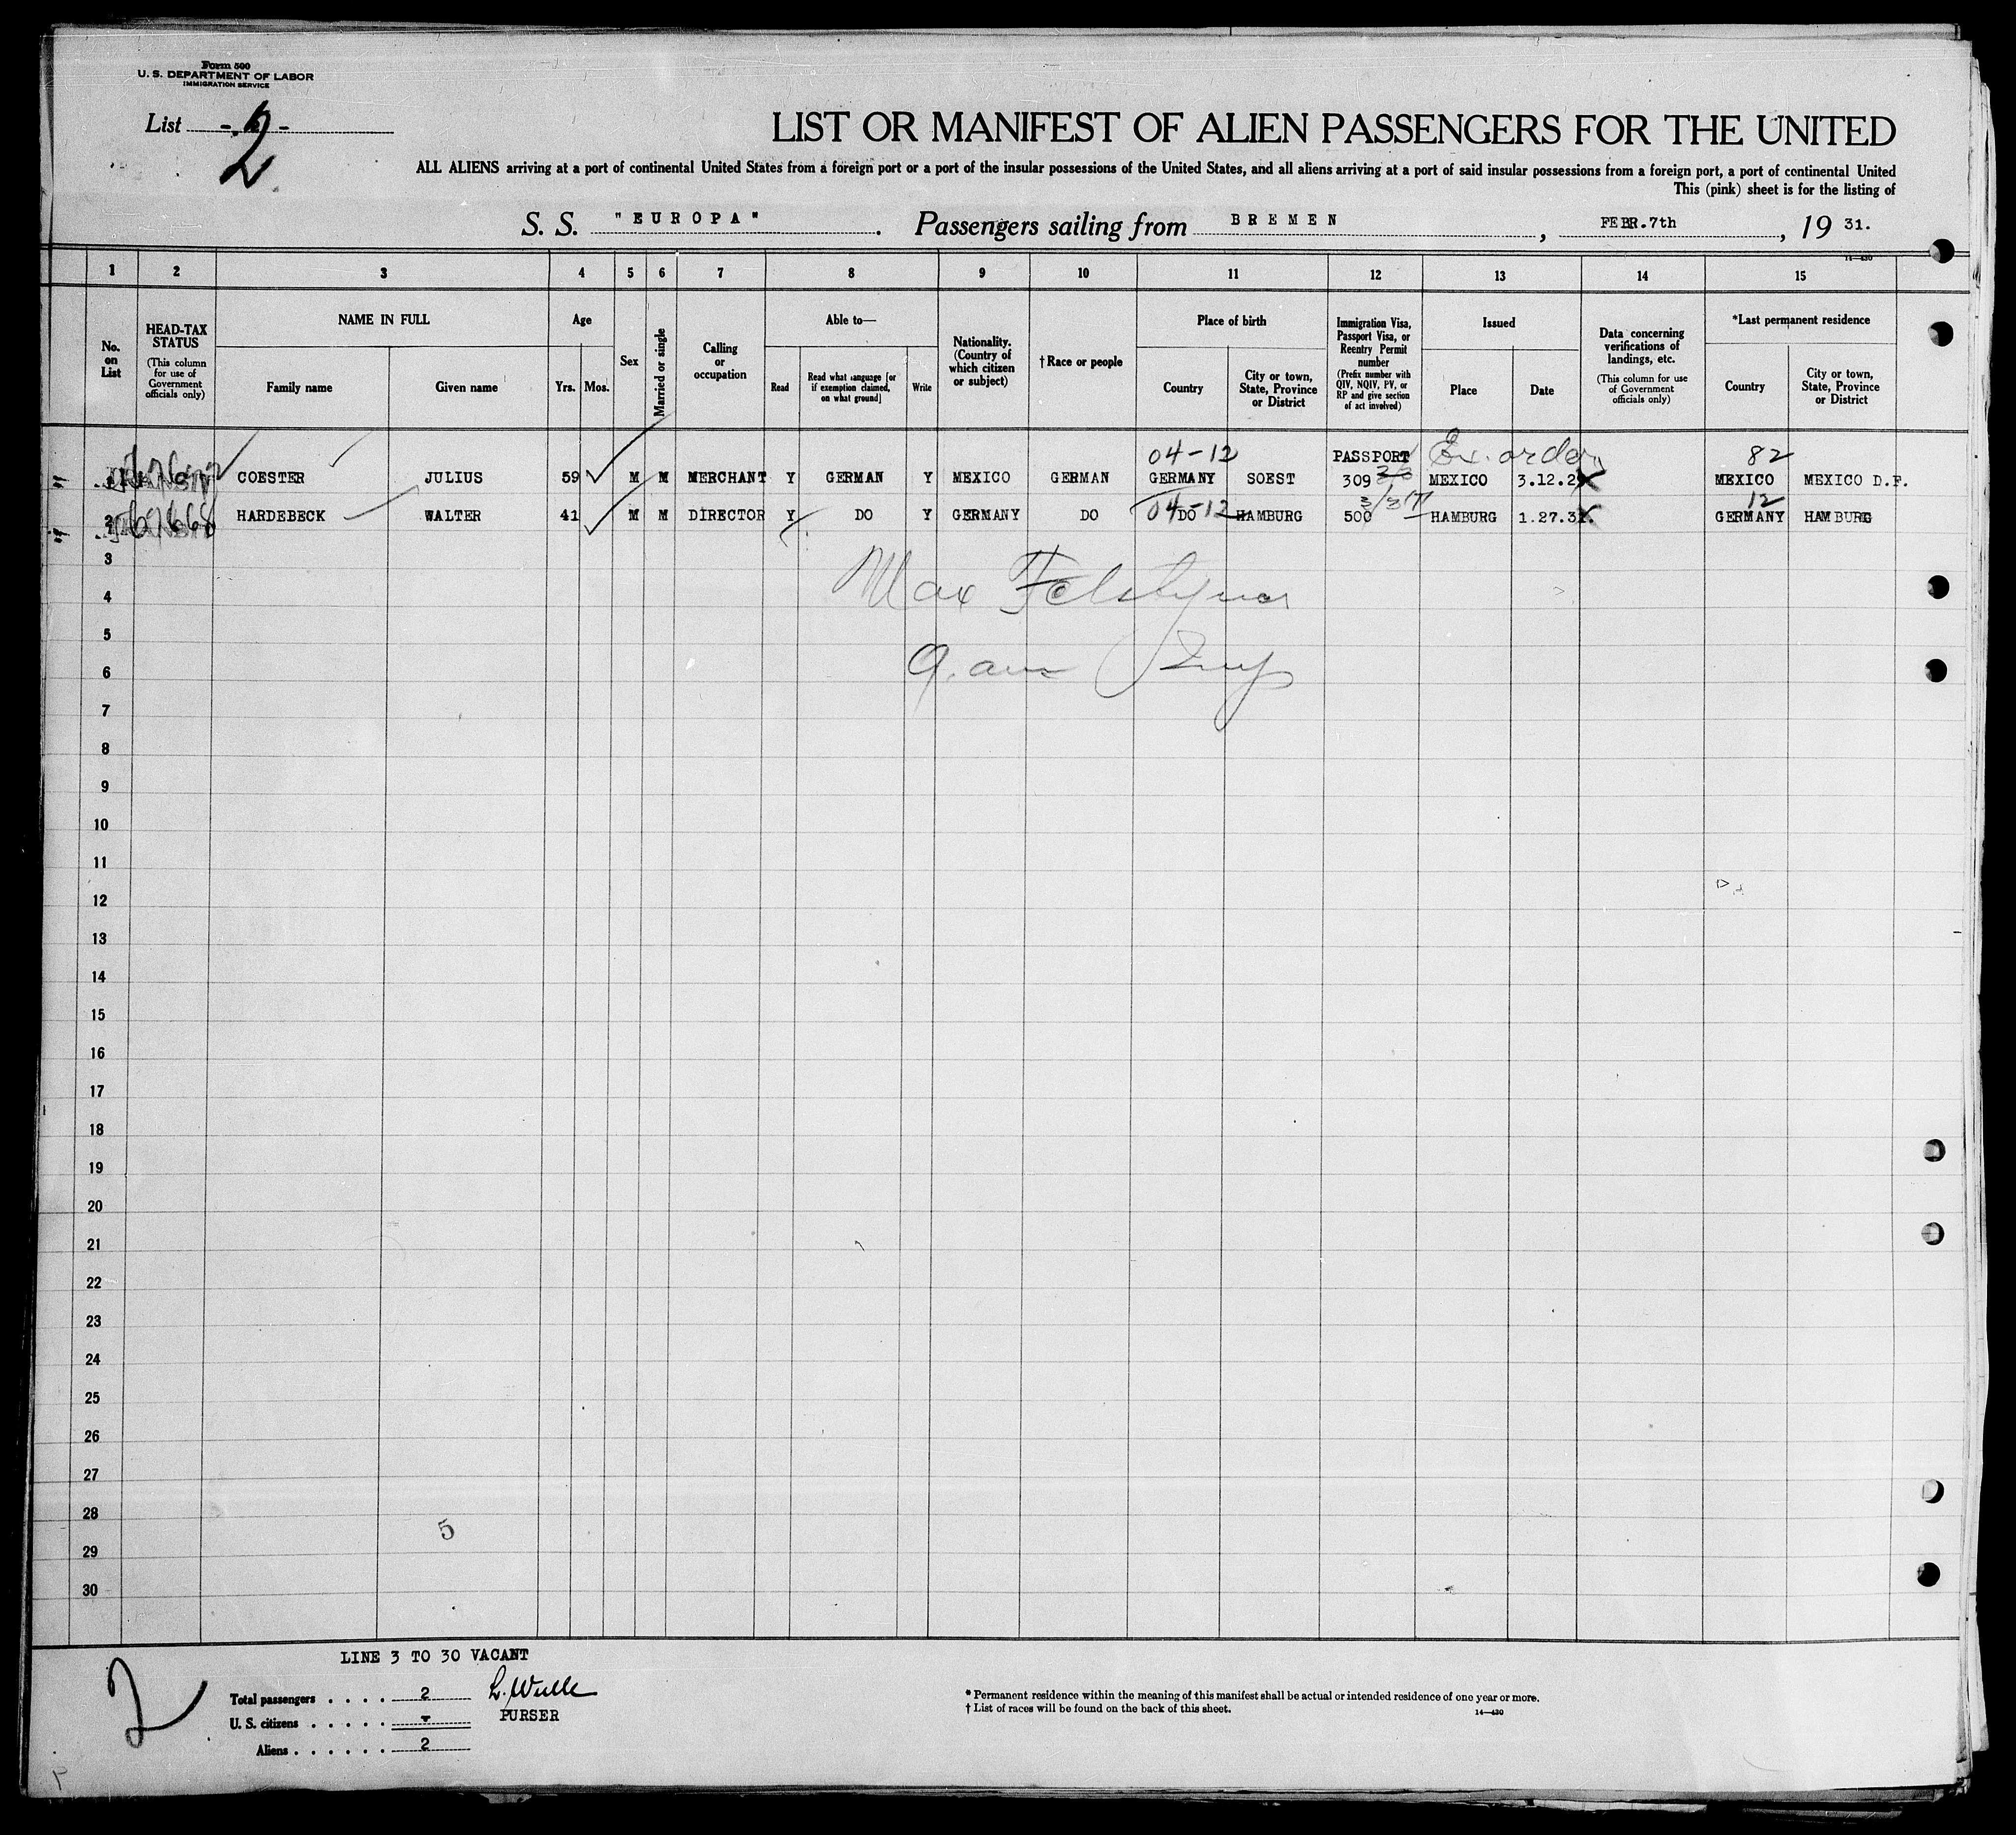 Form 500
U. S. DEPARTMENT OF LABOR
IMMIGRATION SERVICE
List - 2 -
LIST OR MANIFEST OF ALIEN PASSENGERS FOR THE UNITED
ALL ALIENS arriving at a port of continental United States from a foreign port or a port of the insular possessions of the United States, and all aliens arriving at a port of said insular possessions from a foreign port, a port of continental United
This (pink) sheet is for the listing of
S. S. "EUROPA". Passengers sailing from BREMEN, FEBR.7th, 19 31.
14—430
1 2 3 4 5 6 7 8 9 10 11 12 13 14 15
No. on List
HEAD-TAX STATUS (This column for use of Government officials only)
NAME IN FULL
Family name Given name
Age
Yrs. Mos.
Sex
Married or single
Calling or occupation
Able to—
Read Read what language [or if exemption claimed, on what ground] Write
Nationality. (Country of which citizen or subject)
† Race or people
Place of birth
Country City or town, State, Province or District
Immigration Visa, Passport Visa, or Reentry Permit number (Prefix number with QIV, NQIV, PV, or RP and give section of act involved)
Issued
Place Date
Data concerning verifications of landings, etc. (This column for use of Government officials only)
*Last permanent residence
Country City or town, State, Province or District
04-12 PASSPORT Ex. order 82
1 COESTER JULIUS 59 M M MERCHANT Y GERMAN Y MEXICO GERMAN GERMANY SOEST 309 MEXICO 3.12.2 MEXICO MEXICO D.F.
04-12 3/3(7) 12
2 HARDEBECK WALTER 41 M M DIRECTOR Y DO Y GERMANY DO DO HAMBURG 500 HAMBURG 1.27.31. GERMANY HAMBURG
3
Max
4
5
6
7
8
9
10
11
12
13
14
15
16
17
18
19
20
21
22
23
24
25
26
27
28
5
29
30
LINE 3 TO 30 VACANT
2
Total passengers . . . . 2
U. S. citizens . . . . . -
Aliens . . . . . . 2
L. Wulle
PURSER
* Permanent residence within the meaning of this manifest shall be actual or intended residence of one year or more.
† List of races will be found on the back of this sheet.
14—430